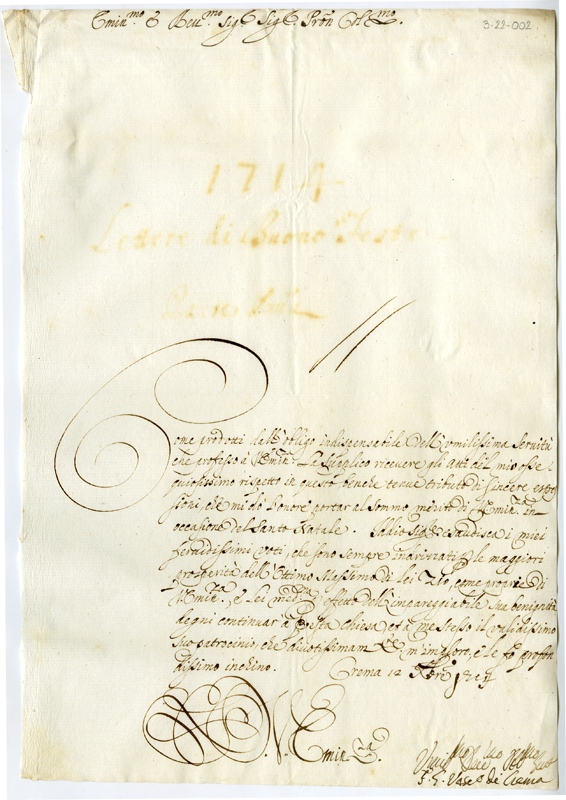 Emin.mo e Reu.mo Sig.r Sig.r Pron Col.mo.
3-22-002
1714
Lettere di Buone Feste
Come prodotti dall'obligo indispensabile dell'umilissima seruitù
che professo à V. Emin.za La supplico riceuere gli atti del mio osse-
quiosissimo rispetto in questo benche tenue tributo di sincere espres-
sioni, che mi dò l'onore portar al sommo merito di V. Emin.za in
occasione del Santo Natale. Iddio Sig.re esaudisca i miei
feruidissimi voti, che sono sempre inariuati p le maggiori
prosperità dell'Ottimo Massimo di lei Zio, come proprie di
V. Emin.za, e lei med.ma effetto dell'impareggiabile sua benignità
degni continuar à questa chiesa et à me stesso il validissimo
suo patrocinio, che diuotissimam.te m'imploro, e le fò profon-
dissimo inchino. Crema 12 Xbre 1714
D. V. Emin.za
F. F. Vesc.o di Crema